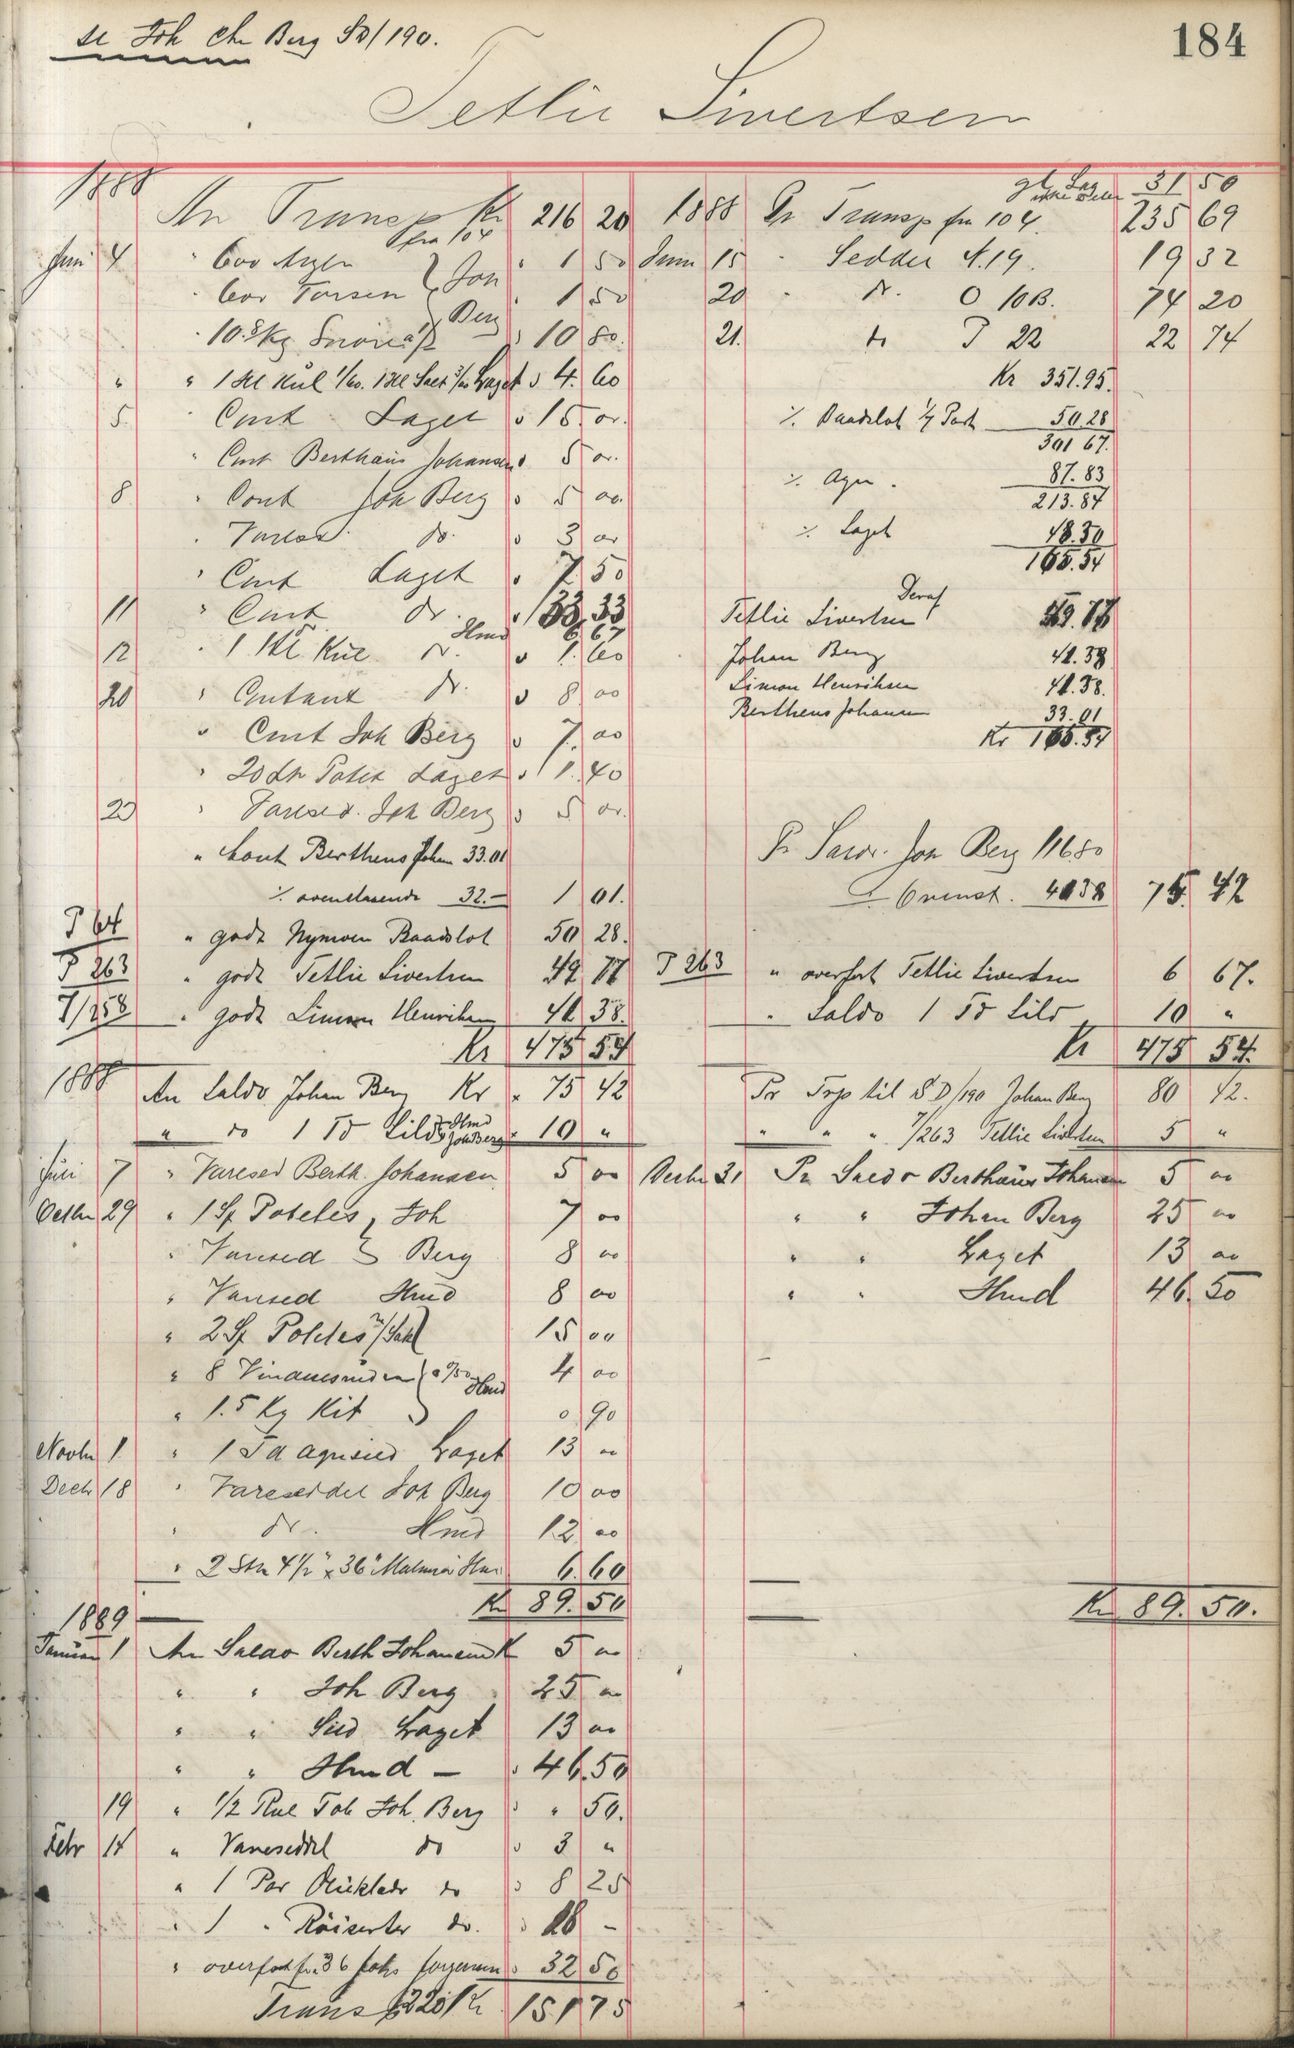 se Joh Chr Berg SD/190.
184
Tetlie Sivertsen
1888
An Transp Kr 216 20
fra 104
Juni 4 " Cov 1 50
" Cov Torsen } Joh 1 50
Berg
" 10.8 Kg Snöre a 1/- " 10 80.
" " 1 Hl Kul 1/60. 1 Hl Salt 3/00 Laget " 4. 60
5. " Cont Laget " 15. 00.
" Cont Berthäus Johansen " 5 00.
8 " Cont Joh Berg " 5 00.
" Varesed. do. " 3 00
" Cont Laget " 7. 50
11 " Cont do. " 33. 33
Hmd 6 67
12 " 1 Hl Kul do. " 1. 60
20 " Contant do. " 8. 00
" Cont Joh Berg " 7. 00
" 20 Ltr Potet Laget " 1. 40
23 " Varesed. Joh Berg " 5 00.
" Cont Berthens Johan 33.01
% ovenstaaende 32.– 1 01.
P 64 " godt Nymoen Baadslot 50 28.
P 263 " godt Tetlie Sivertsen 49 77
7/258 " godt Simon Henriksen 41 38.
Kr 475 54
1888 An Saldo Johan Berg Kr 75 42
" do 1 Td Sild Hmd Joh Berg 10 "
Juli 7 " Varesed Berth. Johansen 5 00
Octbr 29 " 1 Sk Potetes } Joh 7 00
" Varesed } Berg 8 00
" Varesed Hmd 8 00
" 2 Sk Potetes 15 00
" 8 Vinduesruder a 0/50 Hmd 4 00
" 1.5 Kg Kit 0 90
Novbr 1 " 1 Td agnsild Laget 13 00
Decbr 18 " Vareseddel Joh Berg 10 00
" do. Hmd 12 00
" 2 Stk 4 1/2" x 36" 6. 60
Kr 89. 50
1889
Januar 1 An Saldo Berth Johansen K 5 00
" " Joh Berg 25 00
" " Sild Laget 13 00
" " Hmd – 46. 50
19 " 1/2 Rul Tob Joh. Berg " " 50.
Febr 14 " Vareseddel do " 3 "
" 1 Par do " 8 25
" 1 " Röiserter do. " 18 –
" overført fra 36 Johs Jørgensen " 32 50
Transp 220 Kr. 151 75
gl Lag 31 50
1888 Pr Transp fra 104. 235 69
Juni 15 " Seddel N. 19. 19 32
20 " do. O 10 B. 74 20
21. do P 22 22 74
Kr 351.95.
% Baadslot 1/7 Part 50.28
301 67.
% Agn. 87.83
213.84
% Laget 48.30
165.54
Deraf
Tetlie Sivertsen 49.77
Johan Berg 41.38
Simon Henriksen 41.38.
Berthens Johansen 33.01
Kr 165.54
Pr Saldo. Joh Berg 116.80
% Ovenst. 41 38 75. 42
P 263 " overført Tetlie Sivertsen 6 67.
" Saldo 1 Td Sild 10 "
Kr 475 54.
Pr Trsp til SD/190 Johan Berg 80 42.
" " " 7/263 Tetlie Sivertsen 5 "
Decbr 31 Pr Saldo Berthäus Johansen 5 00
" " Johan Berg 25 00
" " Laget 13 00
" " Hmd 46. 50
Kr 89. 50.